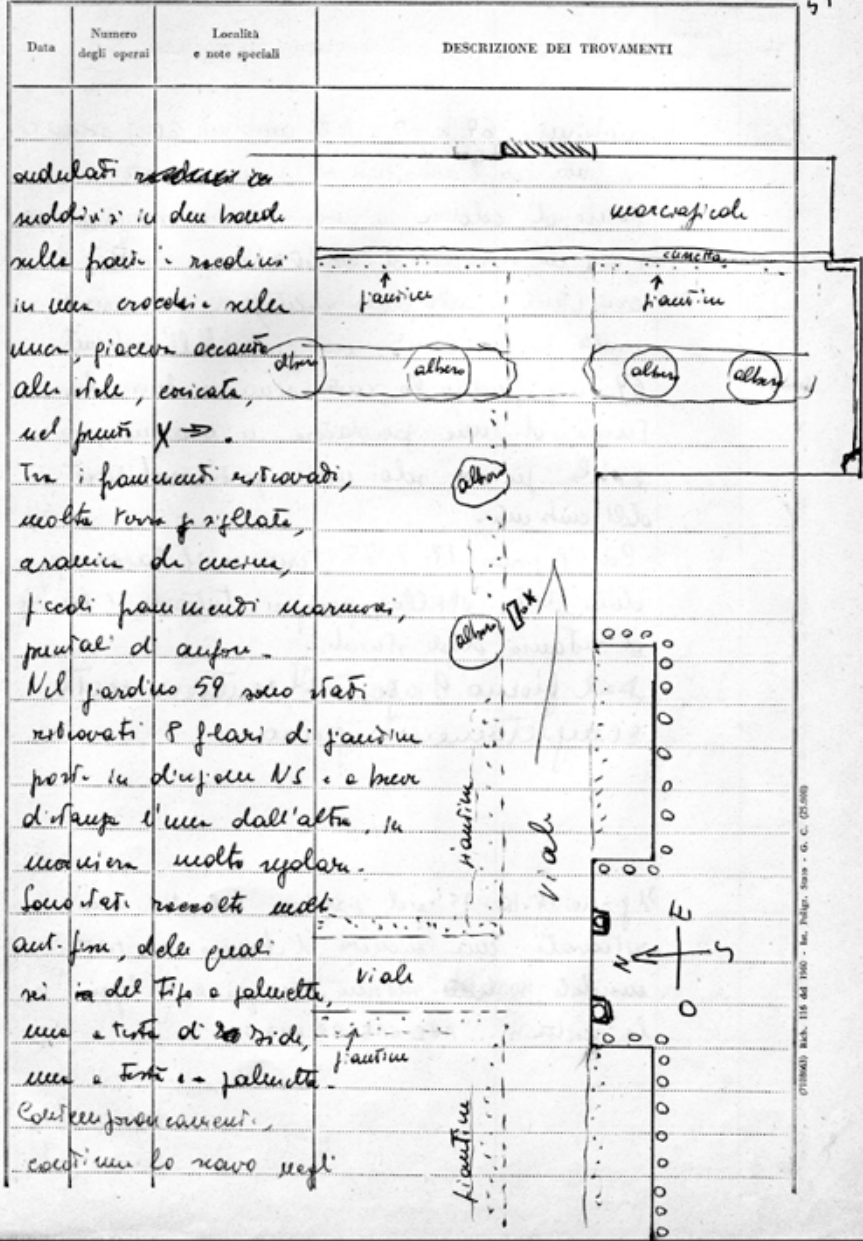 Data
Numero
degli operai
Località
e note speciali
DESCRIZIONE DEI TROVAMENTI
ondulati in
suddivisi in due bande
sulla fronte e raccolti
in una crocchia sulla
nuca, giaceva accanto
alla stele, coricata,
nel punto X →.
Tra i frammenti ritrovati,
molta terra sigillata,
ceramica da cucina,
piccoli frammenti marmorei,
puntali di anfore.
Nel giardino 59 sono stati
ritrovati 8 filari di piantine
poste in direzione NS e a breve
distanza l'una dall'altra, in
maniera molto regolare.
Sono state raccolte molte
antefisse, delle quali
sei del tipo a palmetta,
una a testa di Sicilia,
una a testa e a palmetta.
Contemporaneamente
continua lo scavo negli
marciapiede
cunetta
piantine
piantine
albero
albero
albero
albero
albero
X
albero
viale
piantine
viale
piantine
piantine
N
E
S
O
(7108663) Rich. 116 del 1960 - Ist. Poligr. Stato - G. C. (25.000)